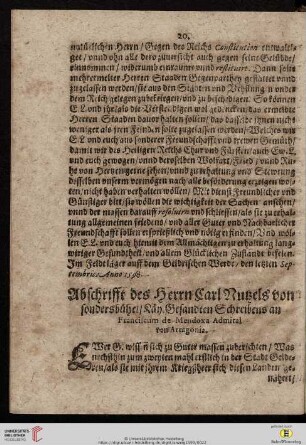 20.
natürlichen Herrn / Gegen des Reichs Constitution entwaltiget / vnnd ohn alle dero zuuersicht auch gegen seine Gelübde /
einnommen / widerumb einraume vnnd restituirt. Dann solte
mehrermelter Herren Staaden Gegenparthey gestattet vnnd
zugelassen werden / sie aus den Städten vnd Vestungen vnder
dem Reich gelegen zubekriegen / vnd zu beschedigen. So können
E L vnd jhr als die Verstendigen wol gedencken / das ermelte
Herren Staaden dauor halten sollen / das dasselbe jhnen nicht
weniger als jren Feinden solte zugelassen werden / Welches wir
E L vnd euch aus sonderer Freundschafft vnd trewem Gemüth /
damit wir des Heiligen Reichs Chur vnd Fürsten / auch Ew. L.
vnd euch gewogen / vnnd derselben Wolfart / Fried / vnnd Ruhe
von Hertzen gerne sehen / vnnd zu erhaltung vnd Stewrung
desselben vnserm vermögen nach alle befürderung erzeigen wolten / nicht haben verhalten wöllen / Mit dienst Freundlicher vnd
Günstiger bitt / sie wöllen die wichtigkeit der Sachen ansehen /
vnnd der massen darauff resoluirn vnd schliessen / als sie zu erhaltung allgemeinen feldens / vnd aller Guter vnd Nachbarlicher
Freundschafft sollen ersprießlich vnd nötig erfinden / Vnd wöllen E L. vnd euch hiemit dem Allmächtigen zu erhaltung langwiriger Gesundtheit vnd allem Glücklichen Zustande befelen.
Im Feldtläger auff dem Gelderischen Werdt / den letzten September Anno 1598.
Abschrifft des Herrn Carl Nutzels von
sondersbühel / Käy. Gesandten Schreibens an
Franciscum de Mendoza Admiral
von Arragonia.
EWer G. wissen sich zu Guter massen zuberichten / Was
nechsthin zum zweyten mahl erstlich in der Stadt Gelderen / als sie mit jhrem Kriegßheer sich diesen Landen genähert /